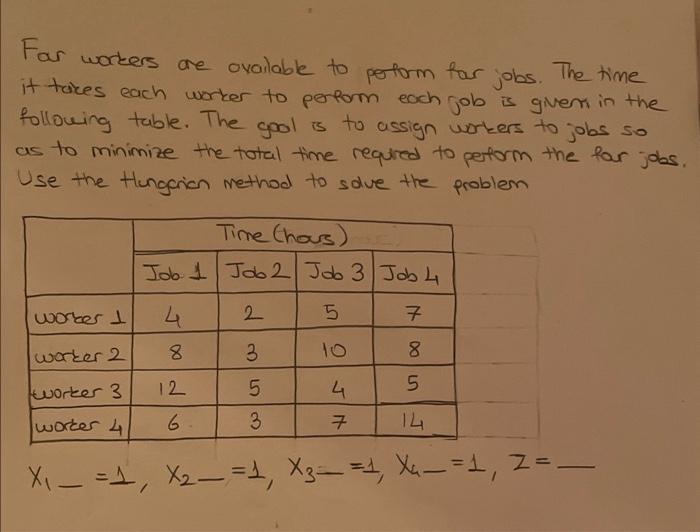 Far workers are available to perform far jobs. The time
it takes each worker to perform each job is given in the
following table. The goal is to assign workers to jobs so
as to minimize the total time required to perform the far jobs.
Use the Hungarian method to solve the problem
Time (hours)
Job 1 Job 2 Job 3 Job 4
worker 1 4 2 5 7
worker 2 8 3 10 8
worker 3 12 5 4 5
worker 4 6 3 7 14
X1_ =1, X2_ =1, X3_ =1, X4_ =1, Z = _